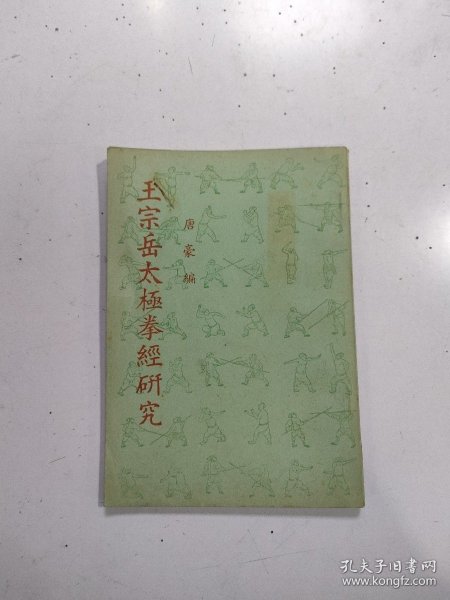 王宗岳太極拳經研究
唐豪編
孔夫子旧書网
www.kongfz.com